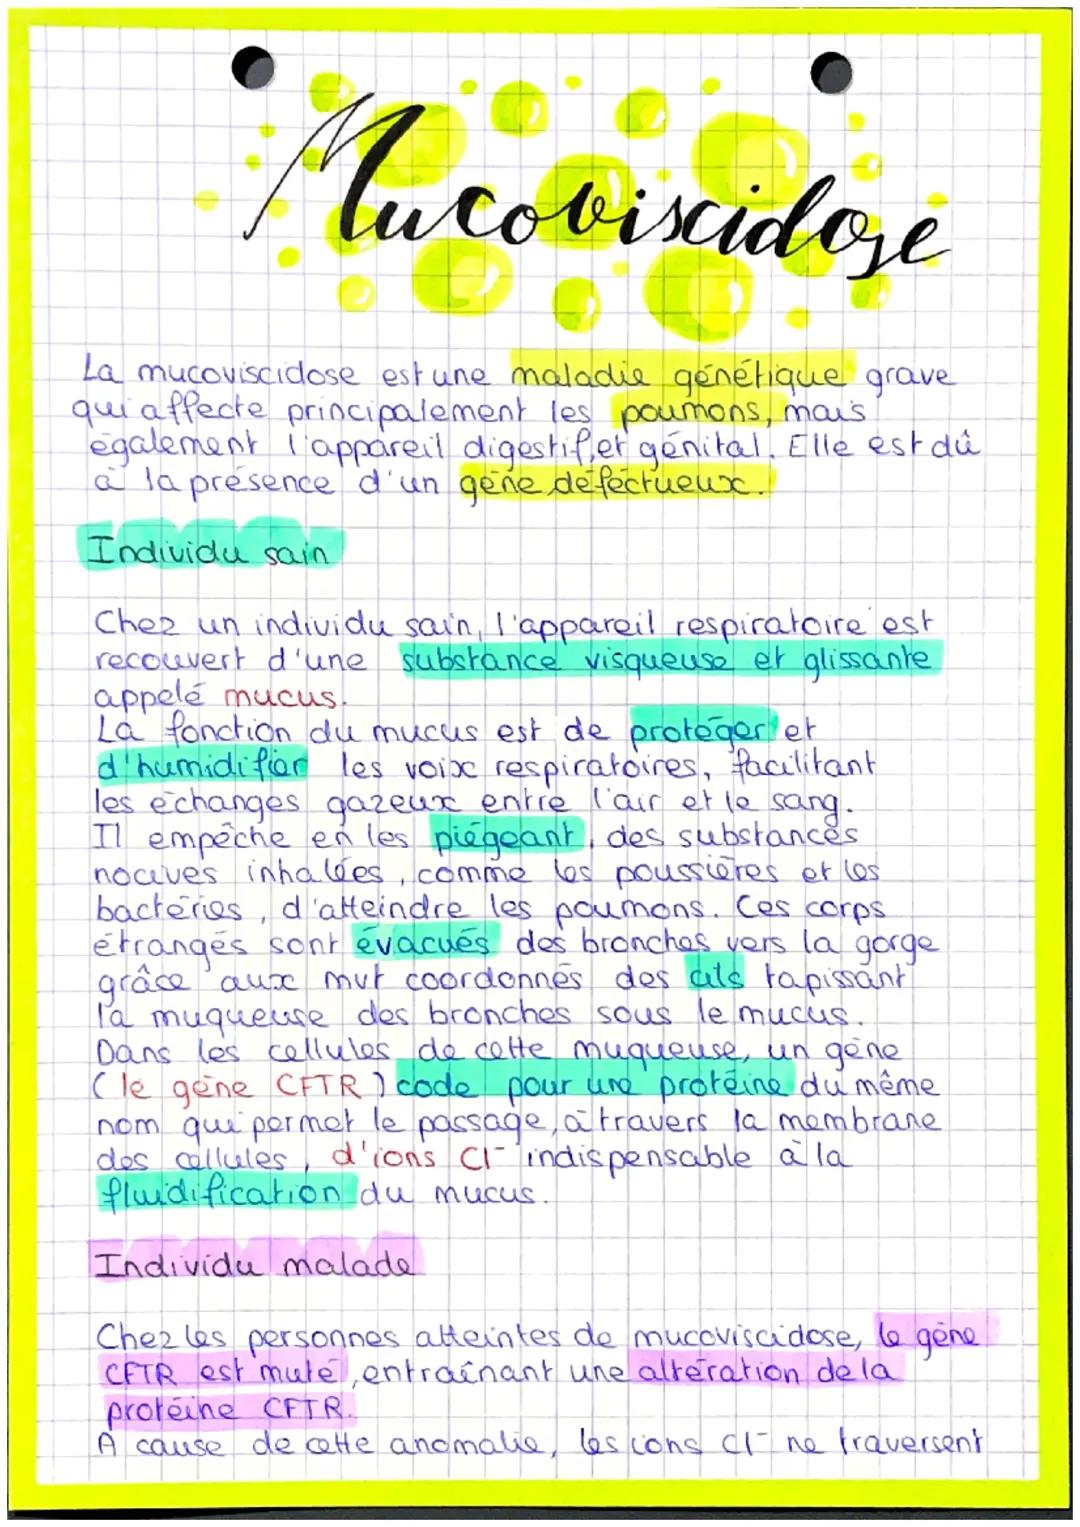 Mucoviscidose
La mucoviscidose est une maladie génétique grave
qui affecte principalement les poumons, mais
également l'appareil digestif et génital. Elle est dû
à la présence d'un gène défectueux.
Individu sain
Chez un individu sain, l'appareil respiratoire est
recouvert d'une substance visqueuse et glissante
appelé mucus.
La fonction du mucus est de protéger et
d'humidifier les voix respiratoires, facilitant
les échanges gazeux entre l'air et le sang.
Il empêche en les piégeant, des substances
nocives inhalées, comme les poussières et les
bactéries, d'atteindre les poumons. Ces corps
étrangés sont évacués des bronches vers la gorge
grâce aux mvt coordonnés des cils tapissant
la muqueuse des bronches sous le mucus.
Dans les cellules de cette muqueuse, un gène
(le gène CFTR) code pour une protéine du même
nom qui permet le passage, à travers la membrane
des cellules, d'ions Cl- indispensable à la
fluidification du mucus.
Individu malade
Chez les personnes atteintes de mucoviscidose, le gène
CFTR est muté, entraînant une altération de la
protéine CFTR.
A cause de cette anomalie, les ions Cl- ne traversent